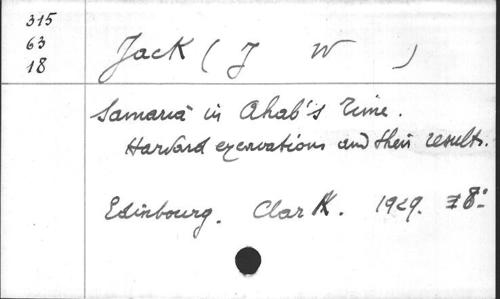 315
63
18
Jack ( J W )
Samaria in Ahab's Time.
Harvard excavations and their results.
Edinbourg. Clark. 1929. 8°